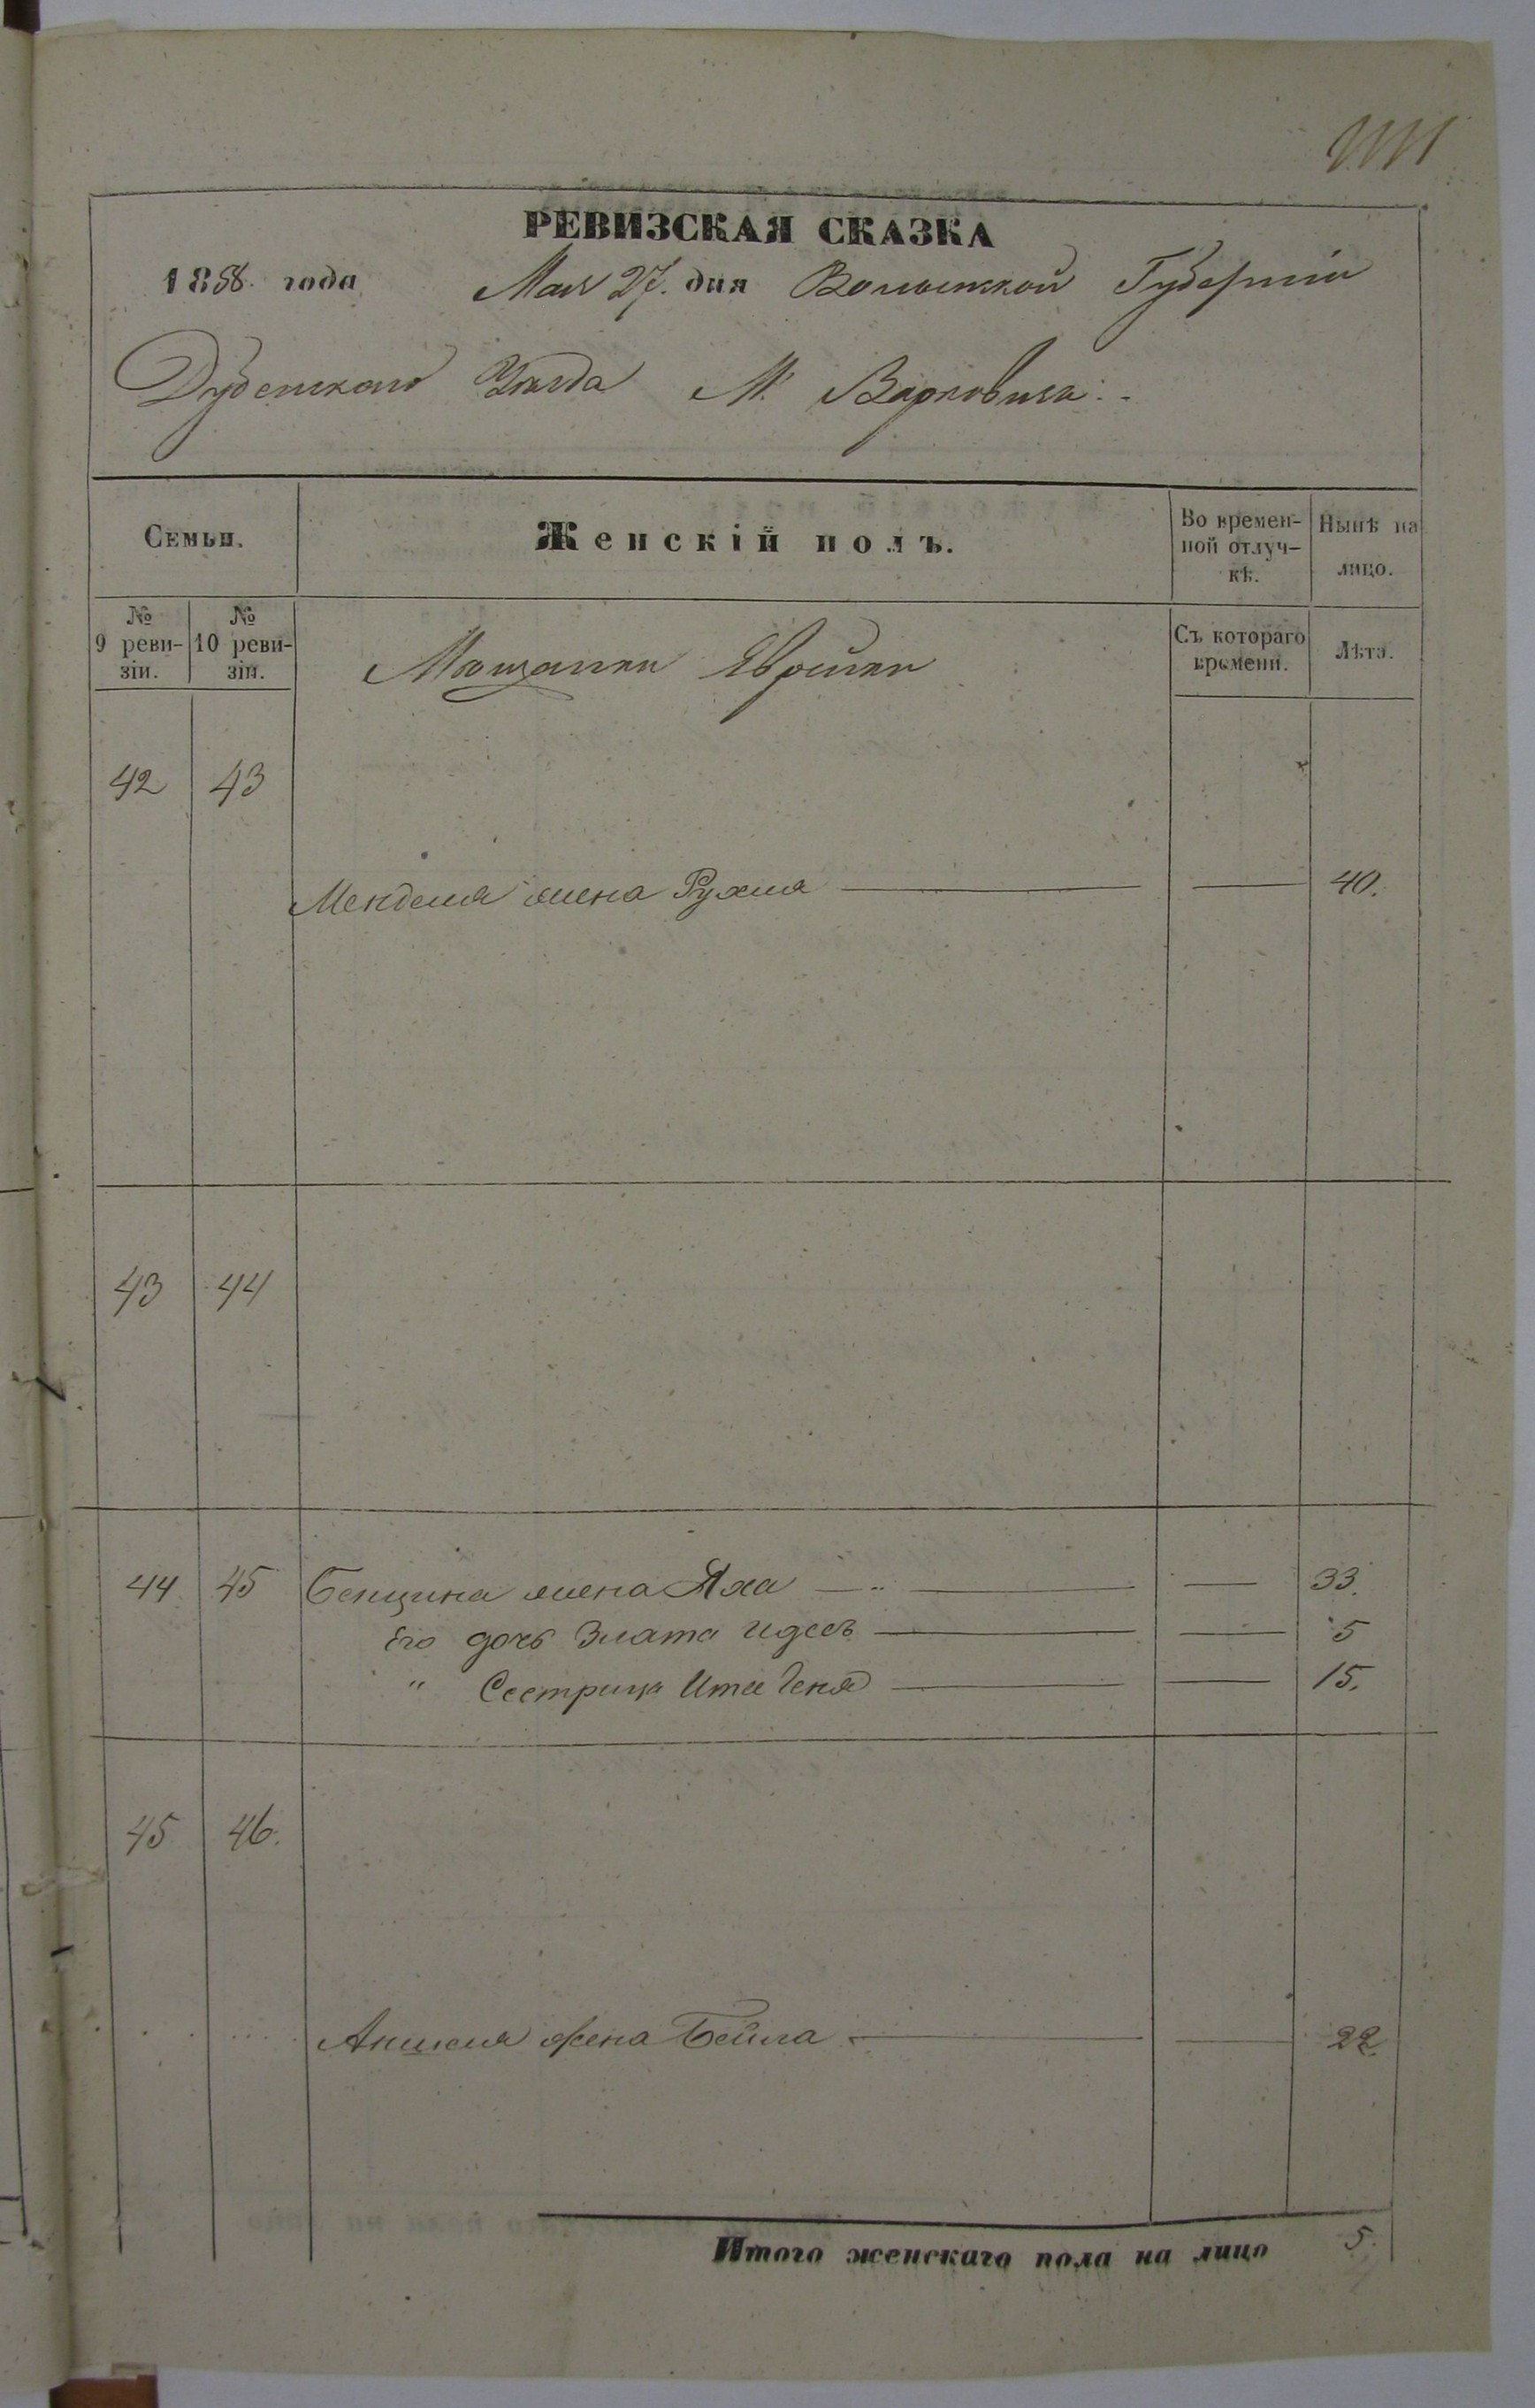 РЕВИЗСКАЯ СКАЗКА
1858. года Мая 27. дня Волынской Губерніи
Дубенскаго Уѣзда М. Варковичь
Семьи.
Женскій полъ.
Во времен-
ной отлуч-
кѣ.
Нынѣ на
лицо.
№
9 реви-
зіи.
№
10 реви-
зіи.
Мѣщанки Еврейки
Съ котораго
времени.
Лѣта.
42 43
Менделя жена Рухля 40.
43 44
44 45 Бенциона жена Хая 33.
Его дочь Злата Идесъ 5
" Сестрица Ита Геня 15.
45 46.
Аншеля жена Бейла 22.
Итого женскаго пола на лицо 5.